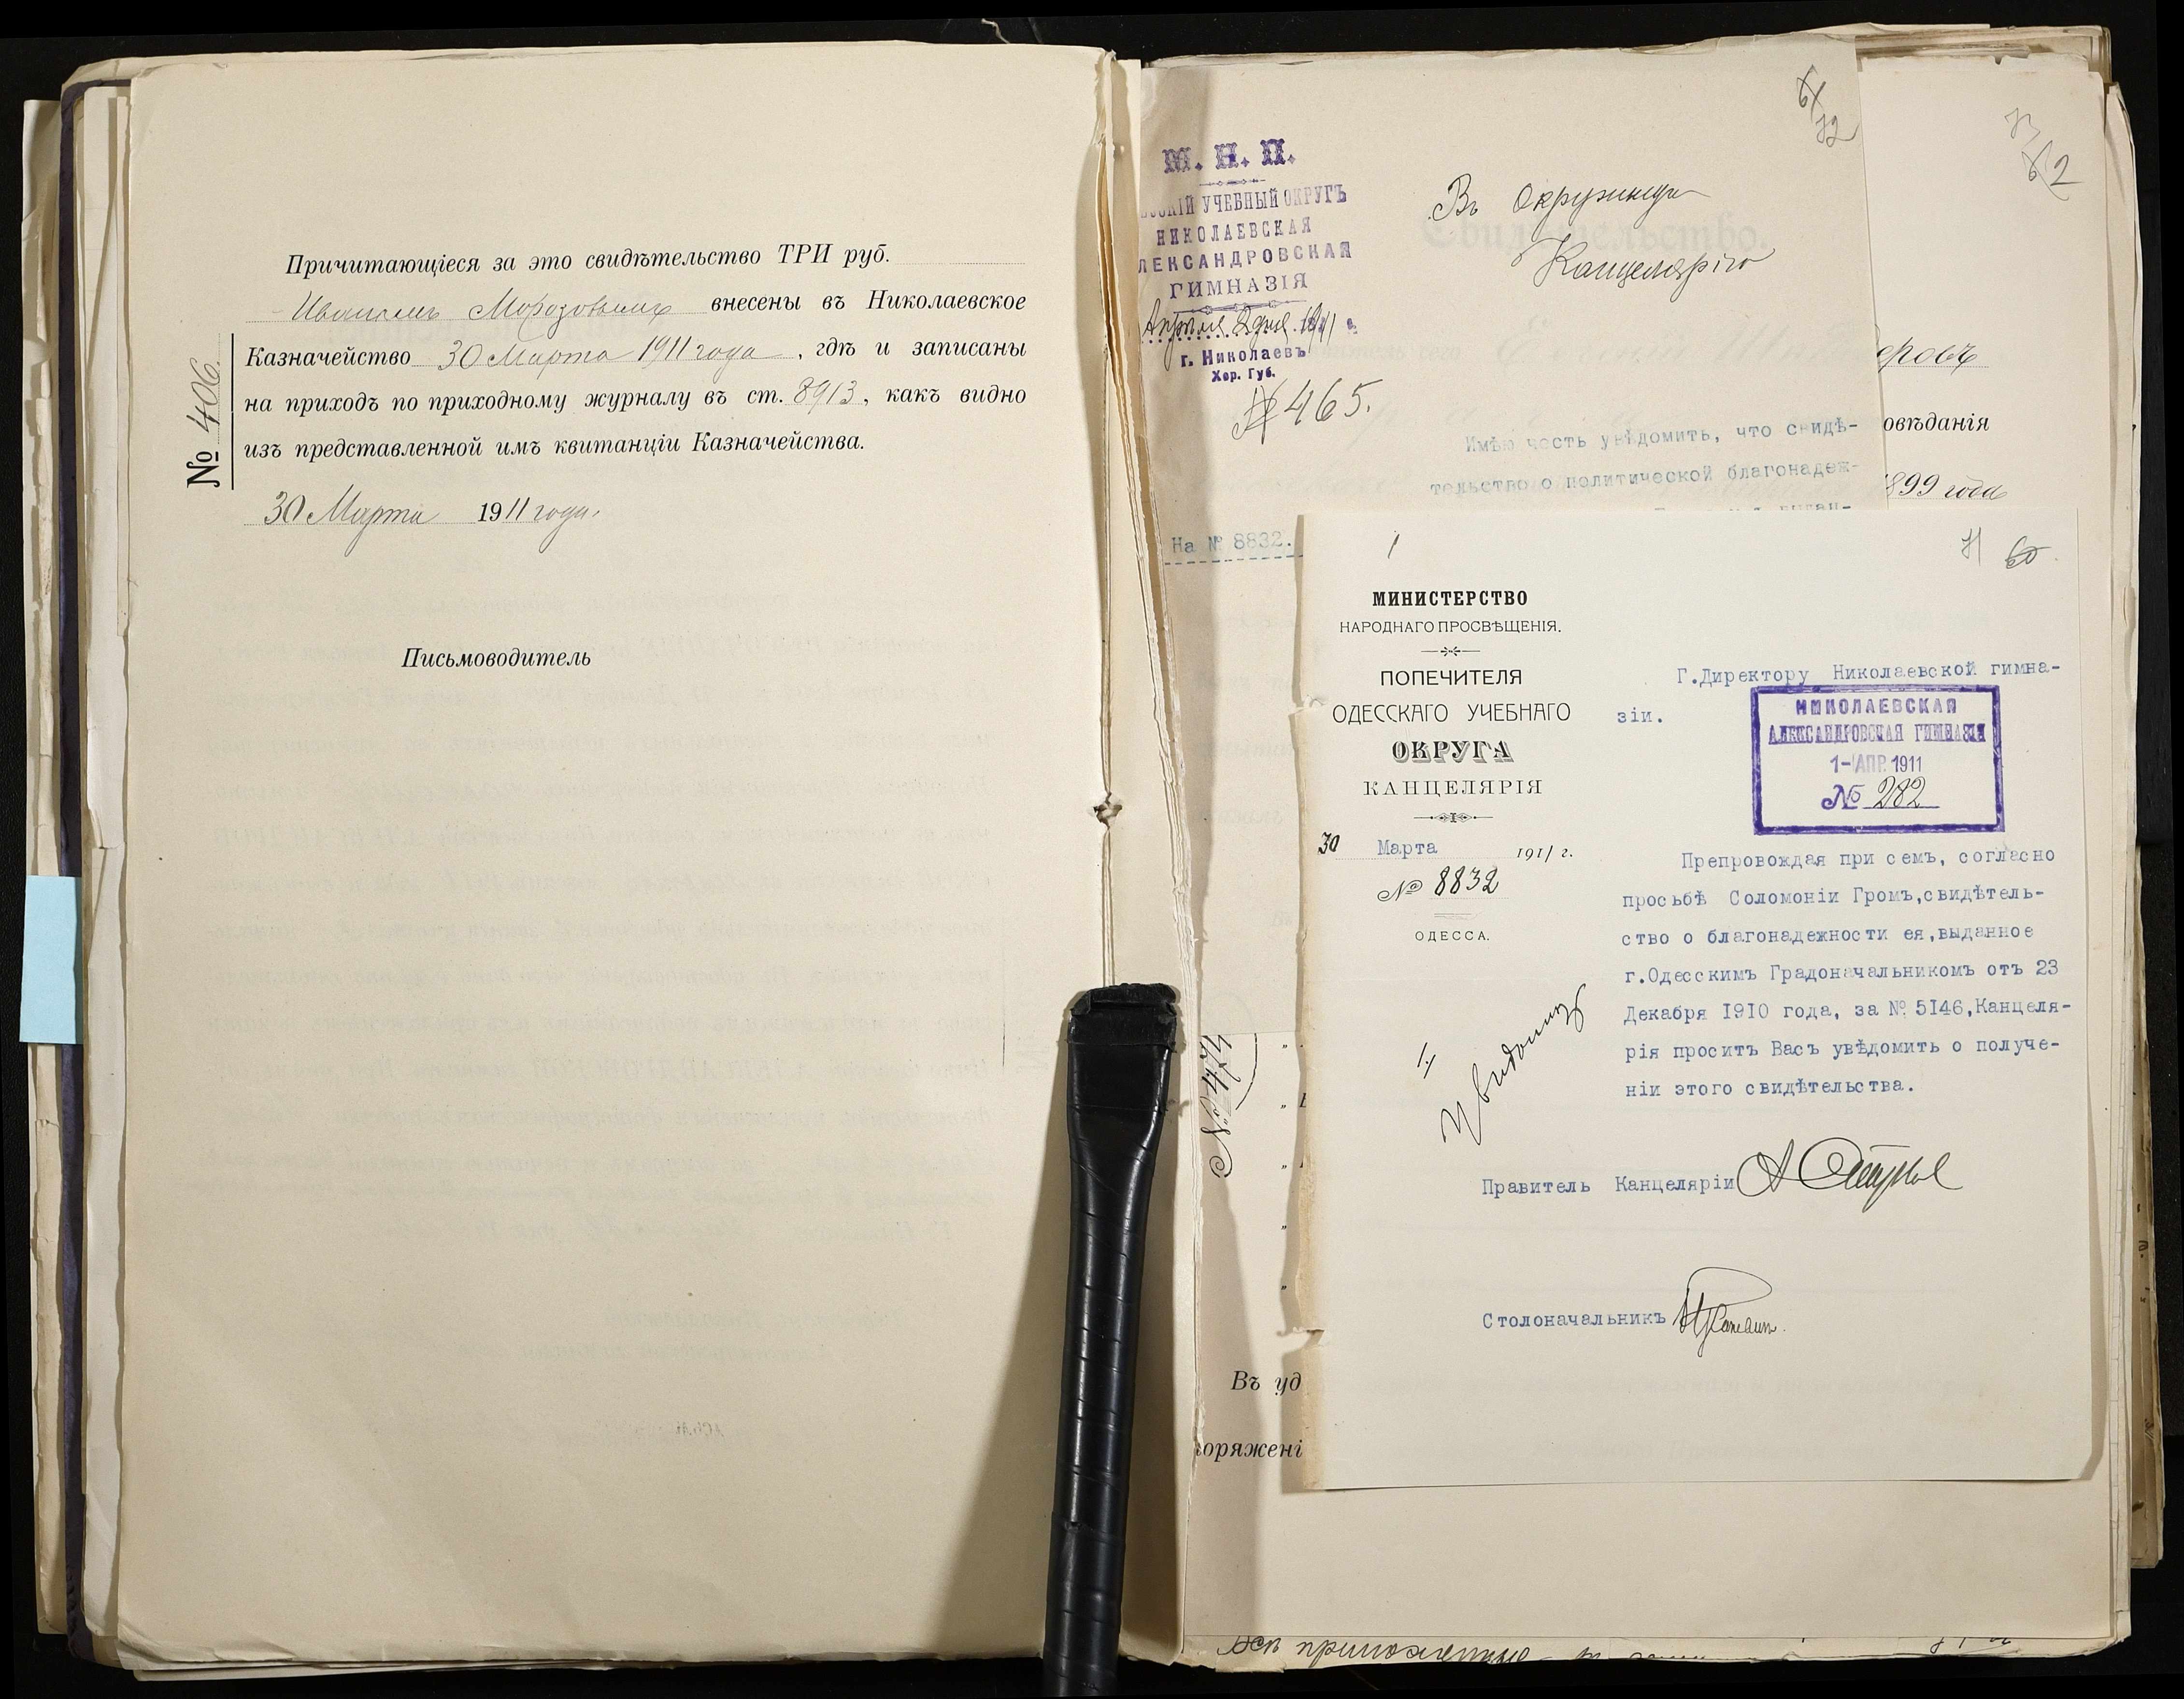 Причитающіеся за это свидѣтельство ТРИ руб.
Иваномъ Морозовымъ внесены въ Николаевское
Казначейство 30 Марта 1911 года, гдѣ и записаны
на приходъ по приходному журналу въ ст. 8913, какъ видно
изъ представленной имъ квитанціи Казначейства.
№ 406.
30 Марта 1911 года.
Письмоводитель
61
72
73
62
М. Н. П.
УЧЕБНЫЙ ОКРУГЪ
НИКОЛАЕВСКАЯ
ЛЕКСАНДРОВСКАЯ
ГИМНАЗІЯ
Апрѣля 2 дня 1911 г.
г. Николаевъ
Хер. Губ.
№ 465.
Въ Окружную
Канцелярію
Свидѣтельство.
еровъ
овѣданія
899 года
Имѣю честь увѣдомить, что свидѣ-
тельство о политической благонадеж-
На № 8832.
71 60
МИНИСТЕРСТВО
НАРОДНАГО ПРОСВѢЩЕНІЯ.
ПОПЕЧИТЕЛЯ
ОДЕССКАГО УЧЕБНАГО
ОКРУГА
КАНЦЕЛЯРІЯ
30 Марта 1911 г.
№ 8832
ОДЕССА.
Г.Директору Николаевской гимна-
зіи.
НИКОЛАЕВСКАЯ
АЛЕКСАНДРОВСКАЯ ГИМНАЗІЯ
1-АПР. 1911
№ 282
Препровождая при семъ, согласно
просьбѣ Соломоніи Громъ,свидѣтель-
ство о благонадежности ея,выданное
г.Одесскимъ Градоначальникомъ отъ 23
Декабря 1910 года, за № 5146,Канцеля-
рія проситъ Васъ увѣдомить о получе-
ніи этого свидѣтельства.
Правитель Канцеляріи
Столоначальникъ
№ 474
Въ уд
оряжені